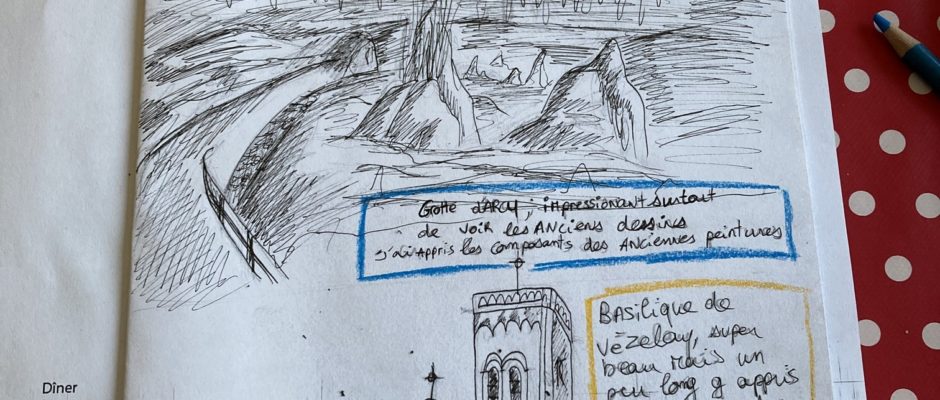 Grotte d'ARCY; impressionant surtout
de voir les Anciens dessins
j'ai appris les composants des Anciennes peintures
BASilique de
Vézelay, super
beau mais un
peu long g appris
Dîner